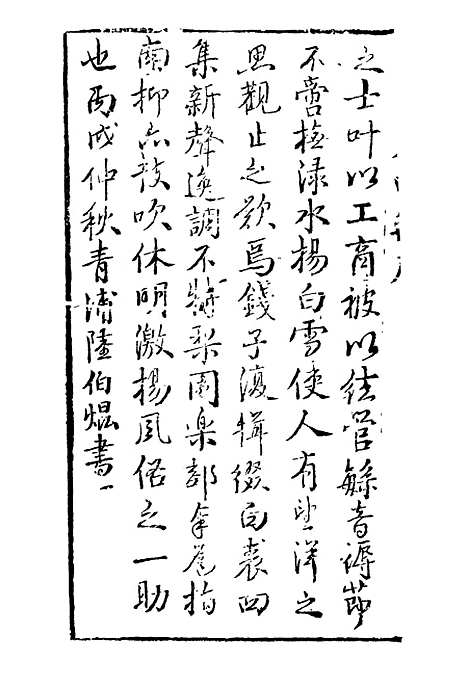 之士叶以工商被以絃管繁音縟節
不啻極渌水楊白雪使人有望洋之
思觀止之歎焉錢子復輯綴白裘四
集新聲逸調不特梨園樂部拿爲指
南抑亦鼓吹休明激揚風俗之一助
也丙戌仲秋青浦陸伯焜書